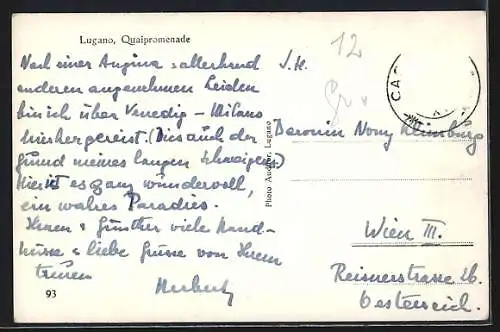 Lugano, Quaipromenade
Nach einer Angina & allerhand
anderen angenehmen Leiden
bin ich über Venedig – Milano
hierher gereist. (Dies auch der
Grund meines langen Schweigens)
Hier ist es ganz wundervoll,
ein wahres Paradies.
Ihnen & Günther viele Hand-
küsse & liebe Grüsse von Ihrem
treuen
Herbert
93
Photo Auditor, Lugano
12
I. H.
Baronin Nony Klinburg
Wien III.
Reisnerstrasse 26.
Oesterreich.
CA